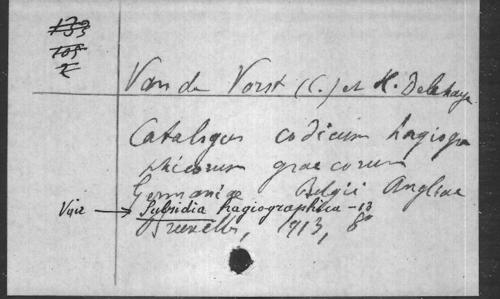 133
105
2
Van de Vorst (C.) et H. Delehaye
Catalogus codicum hagiogra
phicorum graecorum
Germaniae Belgii Angliae
Voir → Subsidia hagiographica - 13
Bruxelles, 1913, 8°